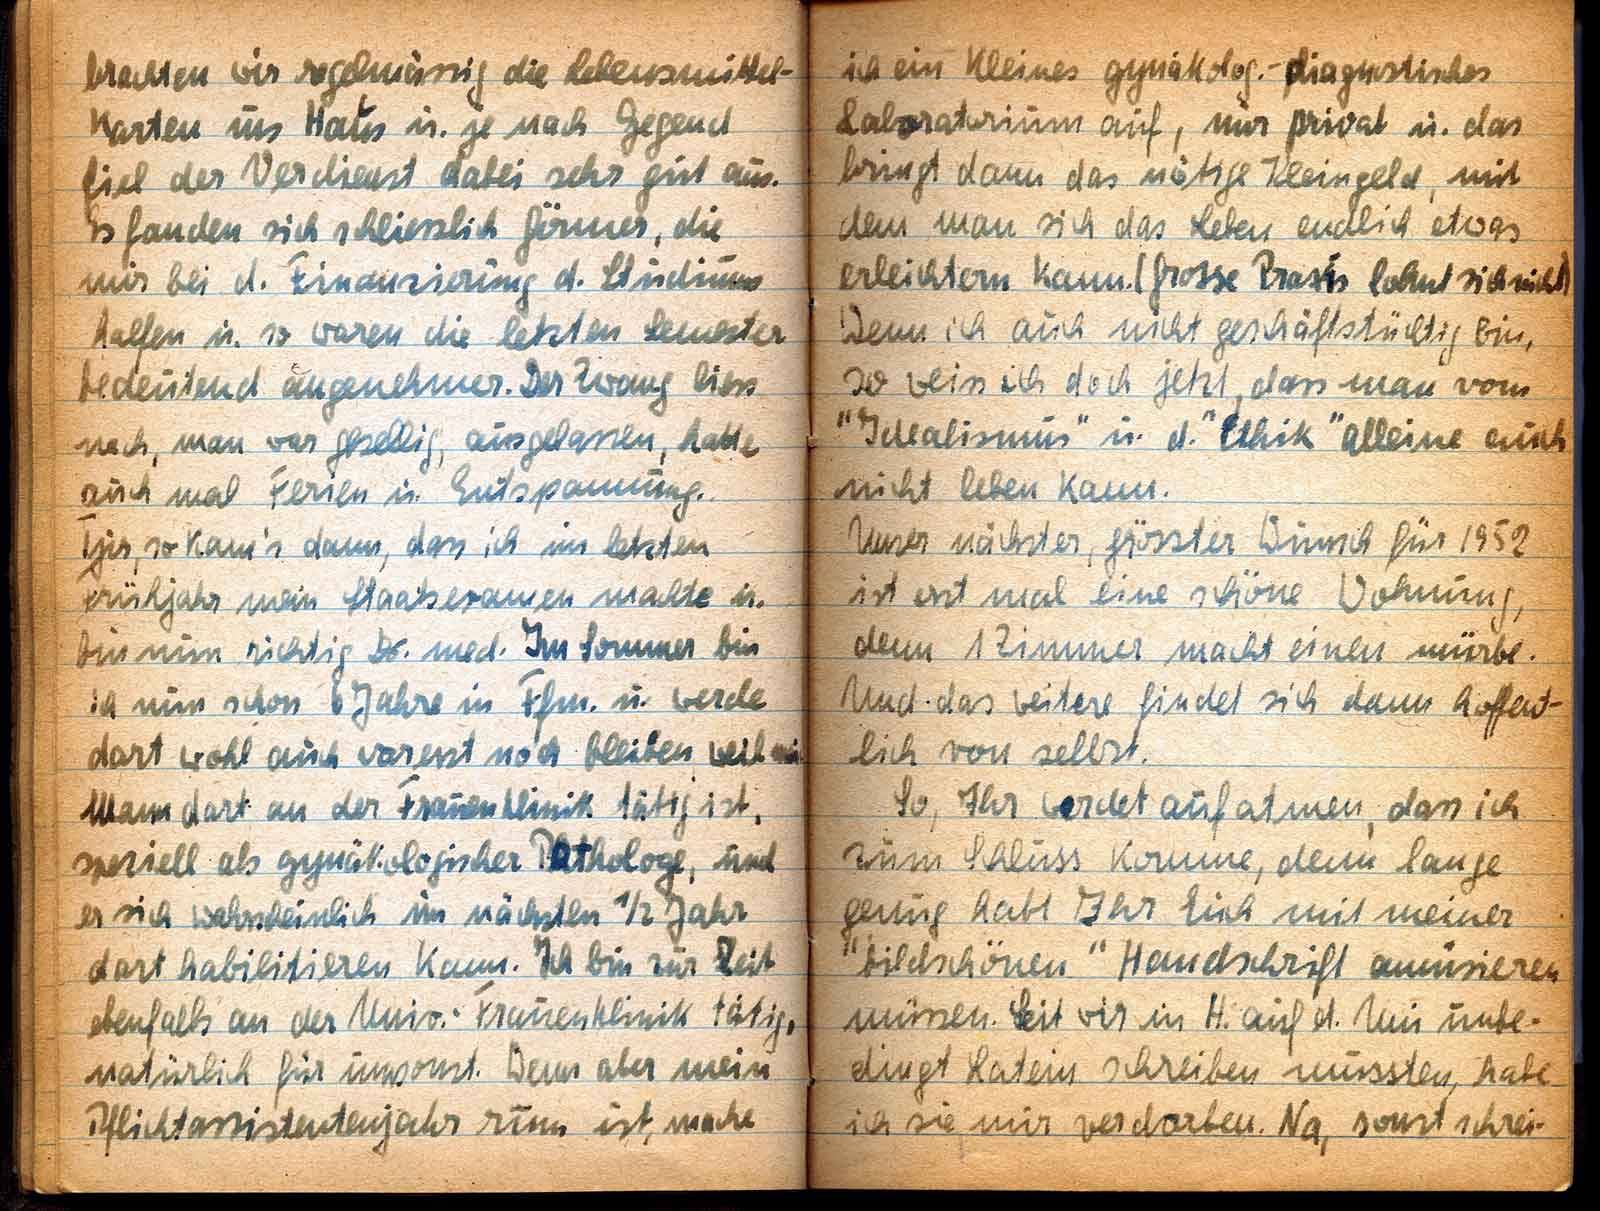 brachten wir regelmässig die Lebensmittel-
Karten ins Haus u. je nach Gegend
fiel der Verdienst dabei sehr gut aus.
Es fanden sich schliesslich Gönner, die
mir bei d. Finanzierung d. Studiums
halfen u. so waren die letzten Semester
bedeutend angenehmer. Der Zwang liess
nach, man war gesellig, ausgelassen, hatte
auch mal Ferien u. Entspannung.
Tja, so kam's dann, dass ich im letzten
Frühjahr mein Staatsexamen machte u.
bin nun richtig Dr. med. Im Sommer bin
ich nun schon 6 Jahre in Ffm. u. werde
dort wohl auch vorerst noch bleiben weil mein
Mann dort an der Frauenklinik tätig ist,
speziell als gynäkologischer Pathologe, und
er sich wahrscheinlich im nächsten 1/2 Jahr
dort habilitieren kann. Ich bin zur Zeit
ebenfalls an der Univ.-Frauenklinik tätig,
natürlich für umsonst. Wenn aber mein
Pflichtassistentenjahr rum ist, mache
ich ein kleines gynäkolog.-diagnostisches
Laboratorium auf, nur privat u. das
bringt dann das nötige Kleingeld, mit
dem man sich das Leben endlich etwas
erleichtern kann. (Grosse Praxis lohnt sich nicht)
Wenn ich auch nicht geschäftstüchtig bin,
so weiss ich doch jetzt, dass man vom
"Idealismus" u. d. "Ethik" alleine auch
nicht leben kann.
Unser nächster, grösster Wunsch für 1952
ist erst mal eine schöne Wohnung,
denn 1 Zimmer macht einen mürbe.
Und das weitere findet sich dann hoffent-
lich von selbst.
So, Ihr werdet aufatmen, dass ich
zum Schluss komme, denn lange
genug habt Ihr Euch mit meiner
"bildschönen" Handschrift amüsieren
müssen. Seit wir in H. auf d. Uni unbe-
dingt Latein schreiben mussten, habe
ich sie mir verdorben. Na, sonst schrei-